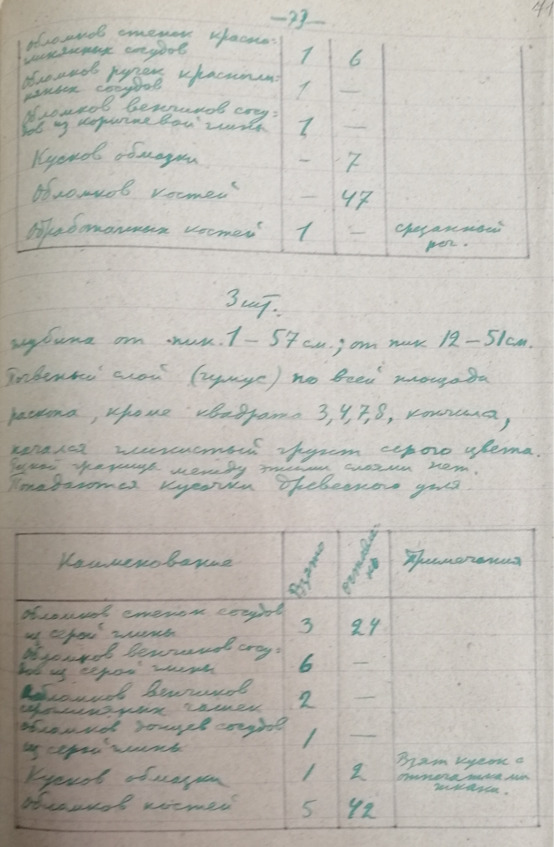 —73—
41
Обломков стенок красно-
глиняных сосудов 1 6
Обломков ручек красногли-
няных сосудов 1 —
Обломков венчиков сосу-
дов из коричневой глины 1 —
Кусков обмазки – 7
Обломков костей – 47
Обработанных костей 1 – срезанный
рог.
3 шт.
глубина от пик. 1 – 57 см.; от пик 12 – 51 см.
Почвеный слой (гумус) по всей площади
раскопа, кроме квадрата 3,4,7,8, кончился,
начался глинистый грунт серого цвета.
границе между этими слоями нет.
Попадаются кусочки древесного угля.
Наименование Взято оставле-
но Примечания
Обломков стенок сосудов
из серой глины 3 24
Обломков венчиков сосу-
дов из серой глины 6 —
Обломков венчиков
сероглиняных чашек 2 —
обломков донцев сосудов
из серой глины 1 —
Кусков обмазки 1 2 Взят кусок с
отпечатками
ткани.
Обломков костей 5 42